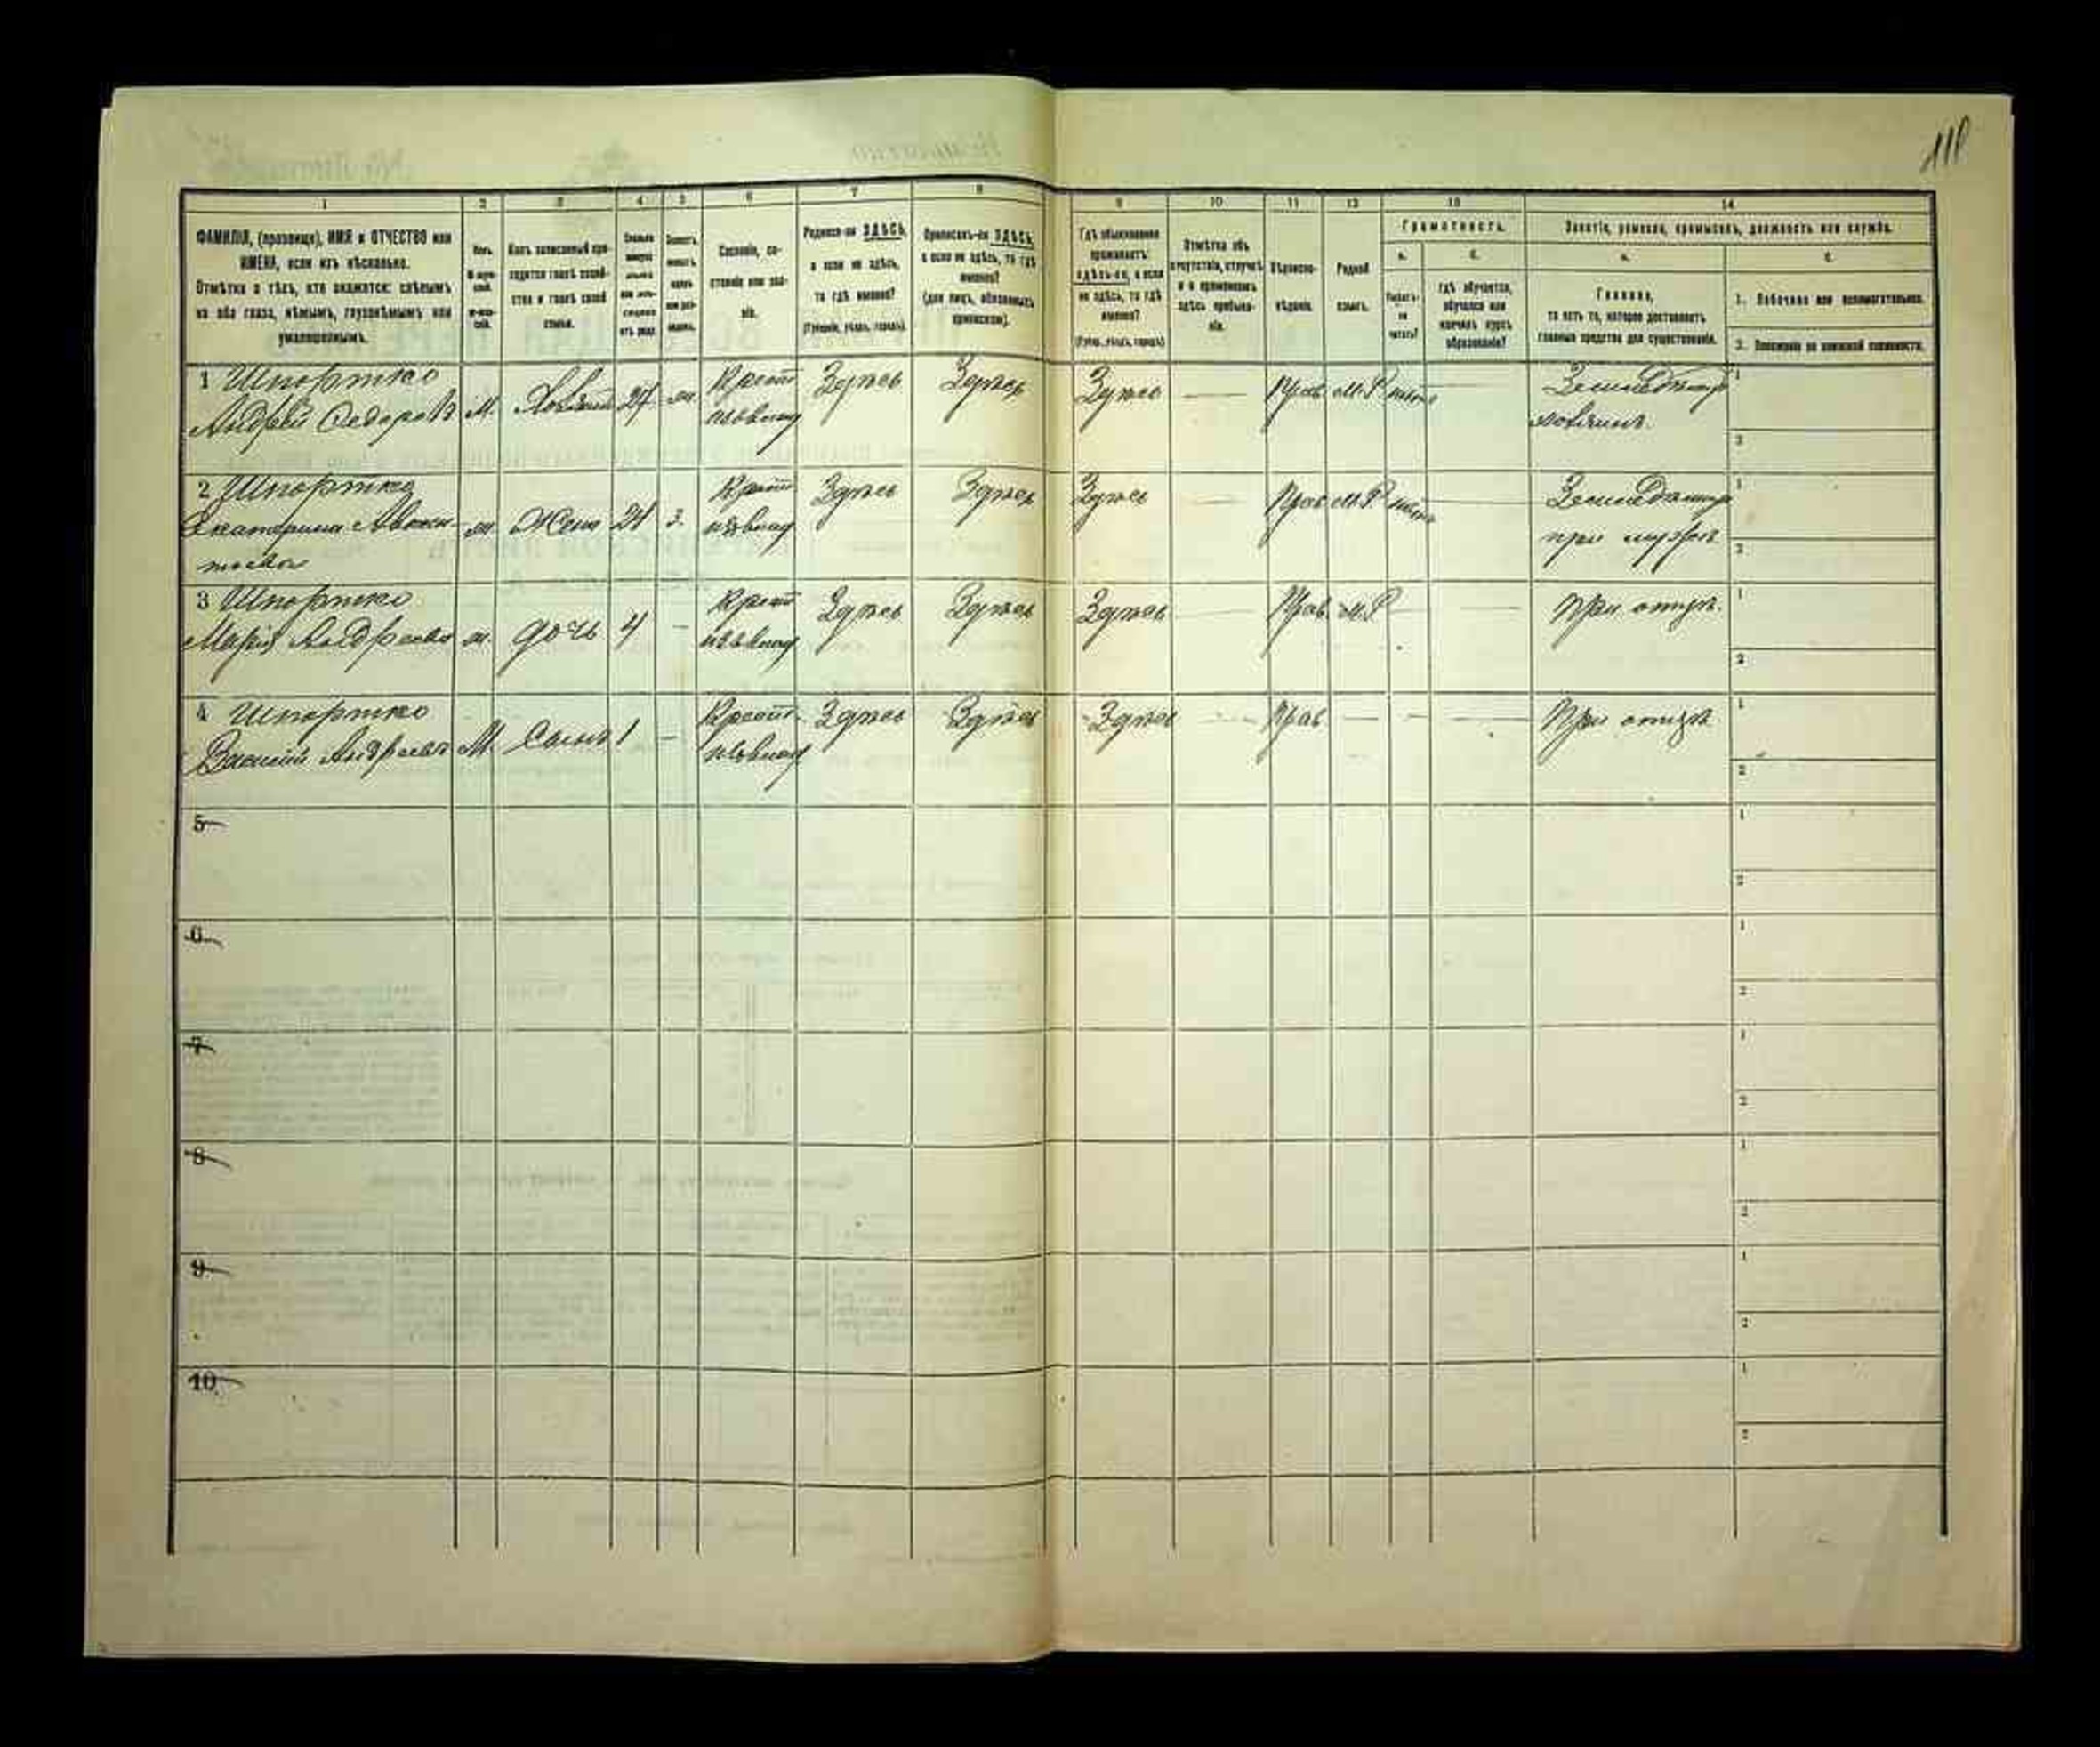 118
1 2 3 4 5 6 7 8 9 10 11 12 13 14
ФАМИЛІЯ, (прозвище), ИМЯ и ОТЧЕСТВО или
ИМЕНА, если ихъ нѣсколько.
Отмѣтка о тѣхъ, кто окажется: слѣпымъ
на оба глаза, нѣмымъ, глухонѣмымъ или
умалишеннымъ.
Полъ.
Какъ записанный при-
ходится главѣ хозяй-
ства и главѣ своей
семьи.
Сословіе, со-
стояніе или зва-
ніе.
Родился-ли ЗДѢСЬ,
а если не здѣсь,
то гдѣ именно?
(Губернія, уѣздъ, городъ).
Приписанъ-ли ЗДѢСЬ,
а если не здѣсь, то гдѣ
именно?
(для лицъ, обязанныхъ
припискою).
Гдѣ обыкновенно
проживаетъ:
здѣсь-ли, а если
не здѣсь, то гдѣ
именно?
(Губер., уѣздъ, городъ)
Отмѣтка объ
отсутствіи, отлучкѣ
и о временномъ
здѣсь пребыва-
ніи.
Вѣроиспо-
вѣданіе.
Родной
языкъ.
Грамотность.
а. б.
Умѣетъ-
ли
читать?
гдѣ обучается,
обучался или
кончилъ курсъ
образованія?
Занятіе, ремесло, промыселъ, должность или служба.
а. б.
Главное,
то есть то, которое доставляетъ
главныя средства для существованія.
1. Побочное или вспомогательное.
2. Положеніе по воинской повинности.
1 Шпортко
Андрей Федоровъ М. Хозяинъ 27 ж. Крест Здѣсь Здѣсь Здѣсь — Прав М.Р. нѣтъ —
2 Шпортко
Екатерина ж. Жена 21 з. Крест Здѣсь Здѣсь Здѣсь — Прав М.Р. нѣтъ —
при мужѣ
3 Шпортко
Марія Андреева ж. дочь 4 — Крест Здѣсь Здѣсь Здѣсь — Прав М.Р. — — При отцѣ.
4 Шпортко
Василій Андреевъ М. Сынъ 1 — Крест Здѣсь Здѣсь Здѣсь — Прав — — — При отцѣ
5
6
7
8
9
10